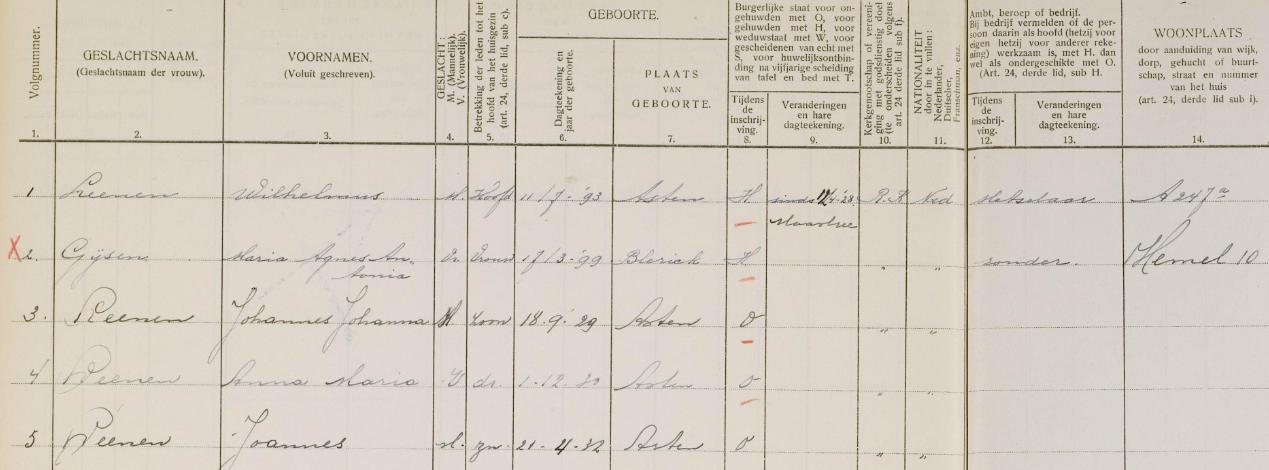 Volgnummer.
1.
GESLACHTSNAAM.
(Geslachtsnaam der vrouw).
2.
VOORNAMEN.
(Voluit geschreven).
3.
GESLACHT:
M. (Mannelijk).
V. (Vrouwelijk).
4.
Betrekking der leden tot het
hoofd van het huisgezin
(art. 24, derde lid, sub c).
5.
GEBOORTE.
Dagteekening en
jaar der geboorte.
6.
PLAATS
VAN
GEBOORTE.
7.
Burgerlijke staat voor on-
gehuwden met O, voor
gehuwden met H, voor
weduwstaat met W, voor
gescheidenen van echt met
S, voor huwelijksontbin-
ding na vijfjarige scheiding
van tafel en bed met T.
Tijdens
de
inschrij-
ving.
8.
Veranderingen
en hare
dagteekening.
9.
Kerkgenootschap of vereeni-
ging met godsdienstig doel
(te onderscheiden volgens
art. 24 derde lid sub f).
10.
NATIONALITEIT
door in te vullen:
Nederlander,
Duitscher,
Franschman, enz.
11.
Ambt, beroep of bedrijf.
Bij bedrijf vermelden of de per-
soon daarin als hoofd (hetzij voor
eigen hetzij voor anderer reke-
ning) werkzaam is, met H. dan
wel als ondergeschikte met O.
(Art. 24, derde lid, sub H.
Tijdens
de
inschrij-
ving.
12.
Veranderingen
en hare
dagteekening.
13.
WOONPLAATS
door aanduiding van wijk,
dorp, gehucht of buurt-
schap, straat en nummer
van het huis
(art. 24, derde lid sub i).
14.
1 Leenen Wilhelmus M. Hoofd 11/7-'93 Asten H. sinds '28 R.K Ned Metselaar A 247a
Maasbree
X 2. Gijsen Maria Agnes An- Vr. Vrouw 17/3-'99 Blerick H. " " zonder. Hemel 10
tonia
3. Leenen Johannes Johanna M. zoon 18.9.'29 Asten O " "
4 Leenen Anna Maria V dr. 1-12.30 Asten O " "
5 Leenen Joannes M. zn. 21-4-32 Asten O " "